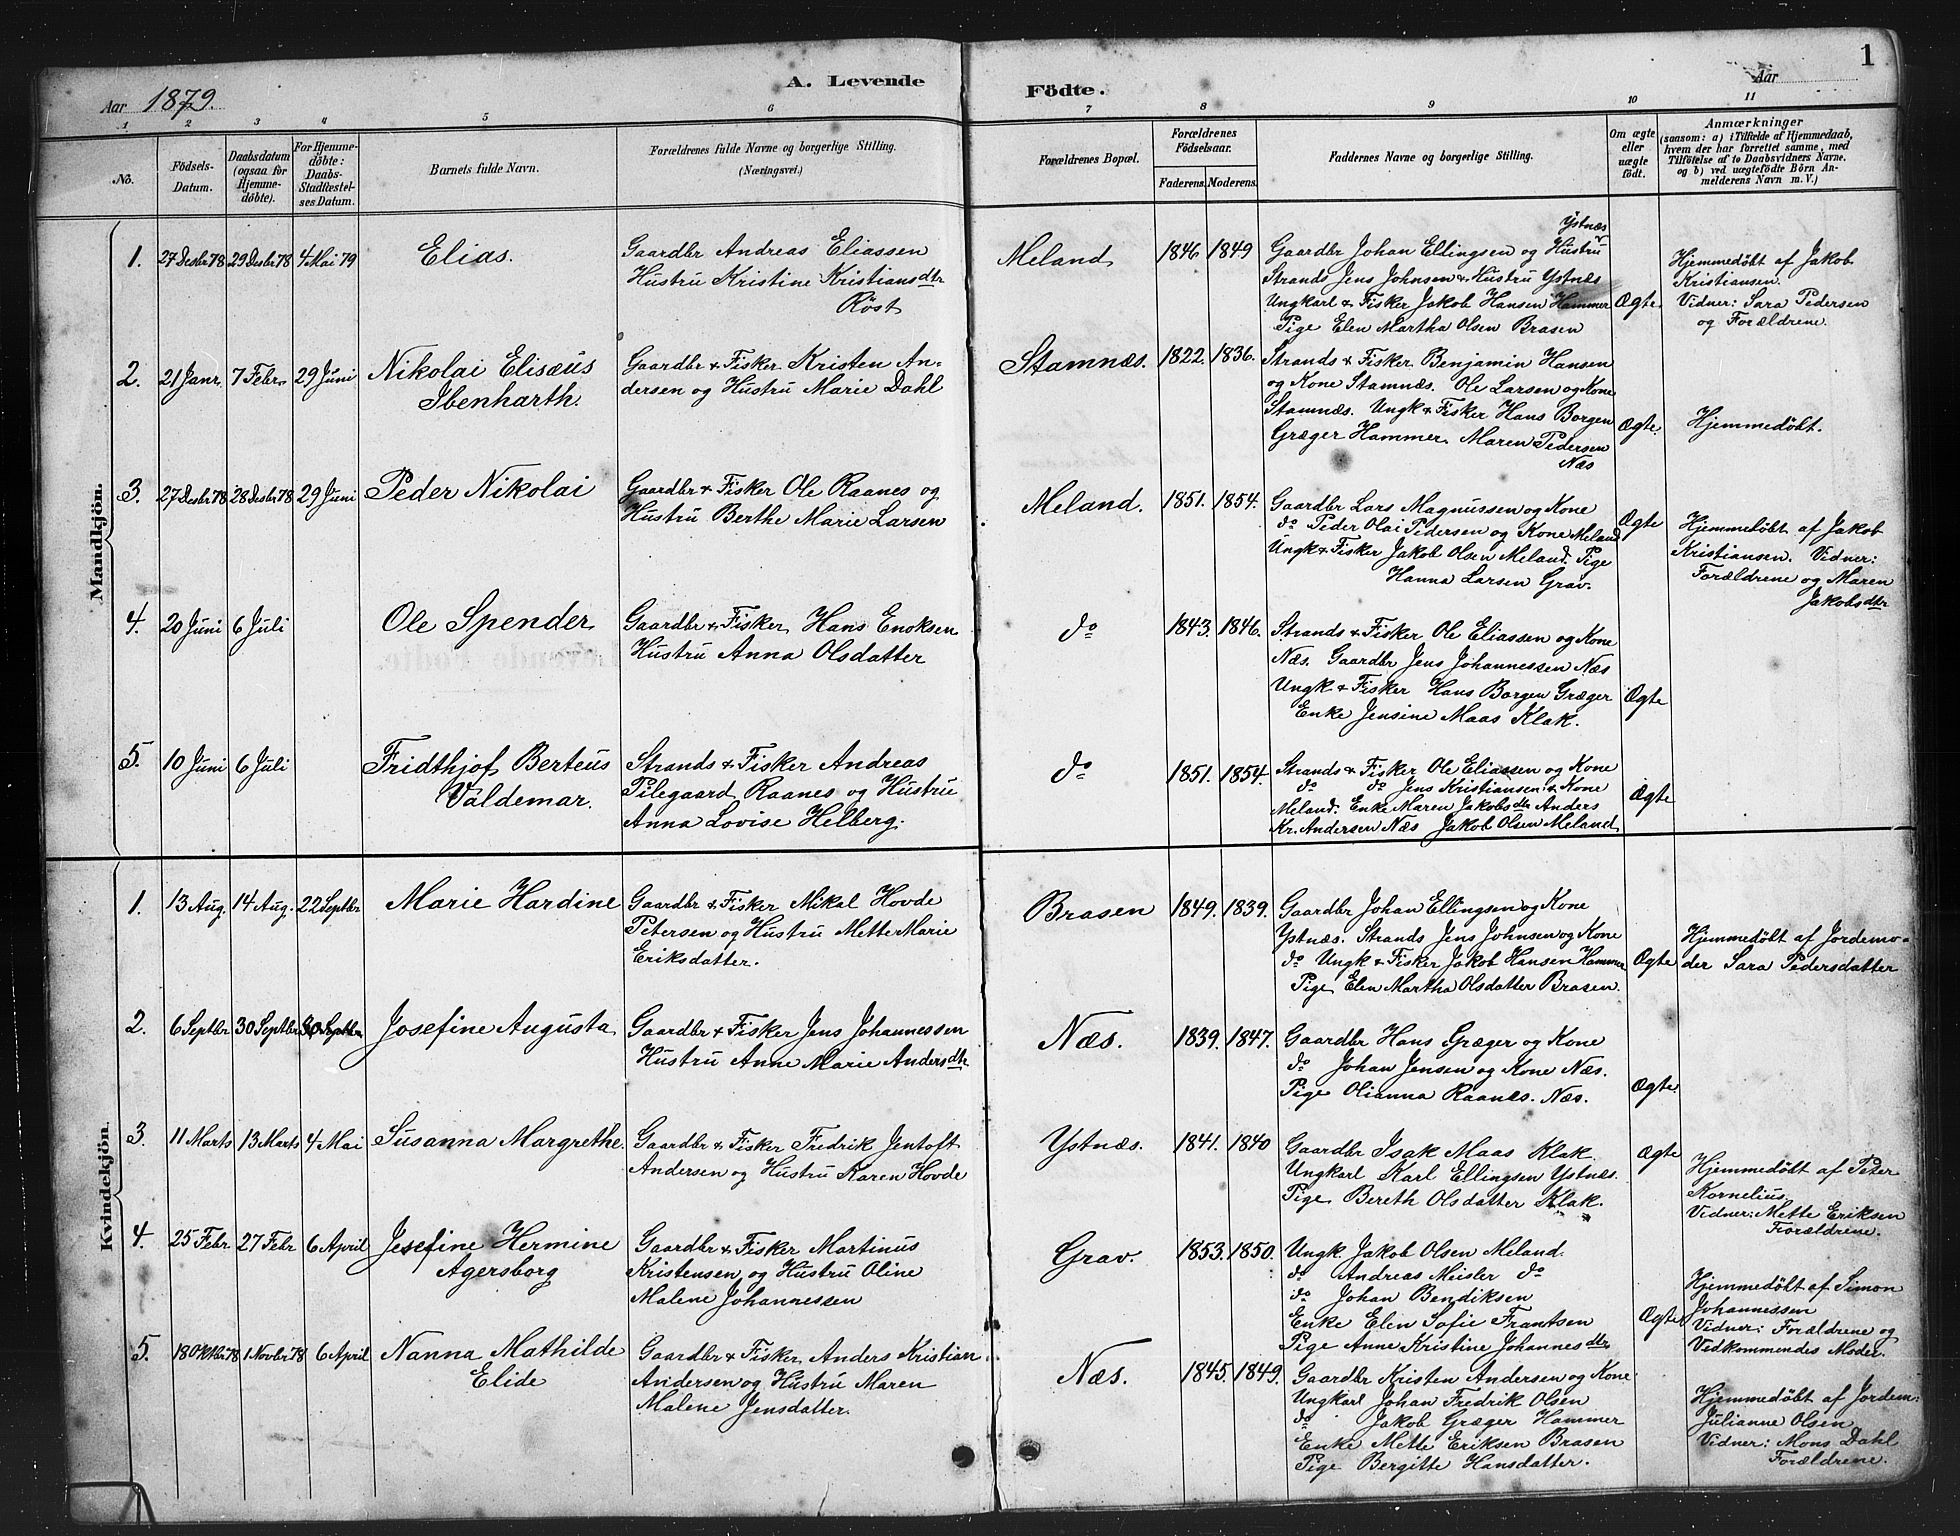 A. Levende Födte.
1
Aar 1879.
Aar
1 2 3 4 5 6 7 8 9 10 11
No.
Födsels-Datum.
Daabsdatum (ogsaa for Hjemmedøbte).
For Hjemmedøbte: Daabs-Stadfæstelses Datum.
Barnets fulde Navn.
Forældrenes fulde Navne og borgerlige Stilling.
(Næringsvei.)
Forældrenes Bopæl.
Forældrenes Födselsaar.
Faderens. Moderens.
Faddernes Navne og borgerlige Stilling.
Om ægte eller uægte født.
Anmærkninger
(saasom: a) i Tilfælde af Hjemmedaab,
hvem der har forrettet samme, med
Tilföielse af to Daabsvidners Navne.
og b) ved uægtefödte Börn An-
melderens Navn m. V.)
Mandkjön.
1. 27 Desbr 78 29 Desbr 78 4 Mai 79
Elias.
Gaardbr Andreas Eliassen
Hustru Kristine Kristiansdtr
Röst
Meland
1846 1849
Ystnæs
Gaardbr Johan Ellingsen og Hustru
Strands Jens Johnsen & Hustru Ystnæs
Ungkarl & Fisker Jakob Hansen Hammer
Pige Elen Martha Olsen Brasen
Ægte
Hjemmedøbt af Jakob
Kristiansen.
Vidner: Sara Pedersen
og Forældrene.
2. 21 Janr. 7 Febr. 29 Juni
Nikolai Elisæus
Ibenharth.
Gaardbr & Fisker Kristen An-
dersen og Hustru Marie Dahl
Stamnæs.
1822. 1836.
Strands & Fisker Benjamin Hansen
og Kone Stamnæs. Ole Larsen og Kone
Stamnæs. Ungk & Fisker Hans Borgen
Græger Hammer. Maren Pedersen
Næs
Ægte.
Hjemmedöbt.
3. 27 Desbr 78 28 Desbr 78 29 Juni
Peder Nikolai
Gaardbr & Fisker Ole Raanes og
Hustru Berthe Marie Larsen
Meland.
1851. 1854.
Gaardbr Lars Magnussen og Kone
do Peder Olai Pedersen og Kone Meland
Ungk & Fisker Jakob Olsen Meland. Pige
Hanna Larsen Grav.
Ægte
Hjemmedöbt af Jakob
Kristiansen. Vidner:
Forældrene og Maren
Jakobsdtr
4. 20 Juni 6 Juli
Ole Spender
Gaardbr & Fisker Hans Enoksen
Hustru Anna Olsdatter
do
1843. 1846.
Strands & Fisker Ole Eliassen og Kone
Næs. Gaardbr Jens Johannessen Næs
Ungk & Fisker Hans Borgen Græger
Enke Jensine Maas Klak.
Ægte
5. 10 Juni 6 Juli
Fridthjof Berteus
Valdemar.
Strands & Fisker Andreas
Pilegaard Raanes og Hustru
Anna Lovise Helberg.
do
1851. 1854.
Strands & Fisker Ole Eliassen og Kone
do do Jens Kristiansen & Kone
Meland. Enke Maren Jakobsdtr Anders
Kr. Andersen Næs Jakob Olsen Meland
Ægte
Kvindekjön.
1. 13 Aug. 14 Aug. 22 Septbr
Marie Hardine
Gaardbr & Fisker Mikal Hovde
Petersen og Hustru Mette Marie
Eriksdatter.
Brasen
1849. 1839.
Gaardbr Johan Ellingsen og Kone
Ystnæs. Strands Jens Johnsen og Kone
do Ungk & Fisker Jakob Hansen Hammer
Pige Elen Martha Olsdatter Brasen.
Ægte
Hjemmedöbt af Jordemo-
der Sara Pedersdatter
2. 6 Septbr 30 Septbr 30 Septbr
Josefine Augusta
Gaardbr & Fisker Jens Johannessen
Hustru Anne Marie Andersdtr
Næs.
1839. 1847.
Gaardbr Hans Græger og Kone
do Johan Jensen og Kone Næs.
Pige Olianna Raanes. Næs.
Ægte.
3. 11 Marts 13 Marts 4 Mai
Susanna Margrethe.
Gaardbr & Fisker Fredrik Jentoft
Andersen og Hustru Karen Hovde
Ystnæs.
1841. 1840
Gaardbr Isak Maas Klak.
Ungkarl Karl Ellingsen Ystnæs.
Pige Bereth Olsdatter Klak.
Ægte
Hjemmedöbt af Peter
Kornelius.
Vidner: Mette Eriksen
Forældrene.
4. 25 Febr 27 Febr 6 April
Josefine Hermine
Agersborg
Gaardbr & Fisker Martinus
Kristensen og Hustru Oline
Malene Johannessen
Grav.
1853. 1850.
Ungk. Jakob Olsen Meland.
do Andreas Meisler do
do Johan Bendiksen
Enke Elen Sofie Frantsen
Pige Anne Kristine Johannesdtr
Ægte
Hjemmedöbt af Simon
Johannessen
Vidner: Forældrene og
Vedkommendes Moder.
5. 18 Oktbr 78 1 Novbr 78 6 April
Nanna Mathilde
Elide
Gaardbr & Fisker Anders Kristian
Andersen og Hustru Maren
Malene Jensdatter.
Næs.
1845. 1849.
Gaardbr Kristen Andersen og Kone
Ungkarl Johan Fredrik Olsen
do Jakob Græger Hammer
Enke Mette Eriksen Brasen
Pige Bergitte Hansdatter.
Hjemmedöbt af Jordem:
Julianne Olsen
Vidner: Mons Dahl
Forældrene.